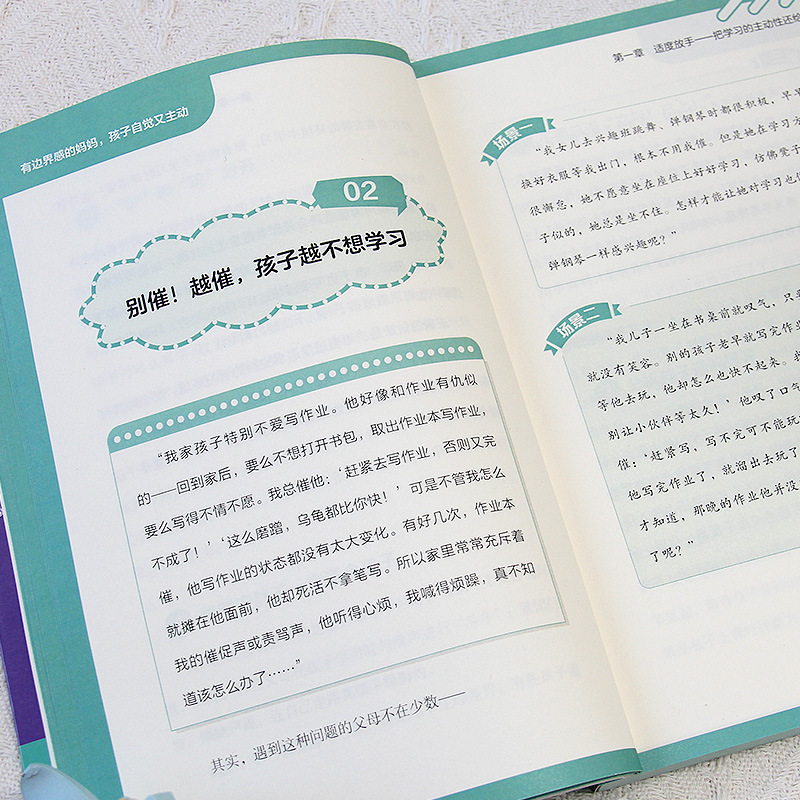 有边界感的妈妈，孩子自觉又主动
02
别催！越催，孩子越不想学习
“我家孩子特别不爱写作业。他好像和作业有仇似
的——回到家后，要么不想打开书包，取出作业本写作业，
要么写得不情不愿。我总催他：‘赶紧去写作业，否则又完
不成了！’‘这么磨蹭，乌龟都比你快！’可是不管我怎么
催，他写作业的状态都没有太大变化。有好几次，作业本
就摊在他面前，他却死活不拿笔写。所以家里常常充斥着
我的催促声或责骂声，他听得心烦，我喊得烦躁，真不知
道该怎么办了……”
其实，遇到这种问题的父母不在少数——
第一章 适度放手——把学习的主动性还给
场景一
“我女儿去兴趣班跳舞、弹钢琴时都很积极，早早
换好衣服等我出门，根本不用我催。但是她在学习方
很懈怠，她不愿意坐在座位上好好学习，仿佛凳子
子似的，她总是坐不住。怎样才能让她对学习也像
弹钢琴一样感兴趣呢？”
场景二
“我儿子一坐在书桌前就叹气，只要
就没有笑容。别的孩子老早就写完作
等他去玩，他却怎么也快不起来。
别让小伙伴等太久！’他叹了口气
催：‘赶紧写，写不完可不能玩
他写完作业了，就溜出去玩了
才知道，那晚的作业他并没
了呢？”